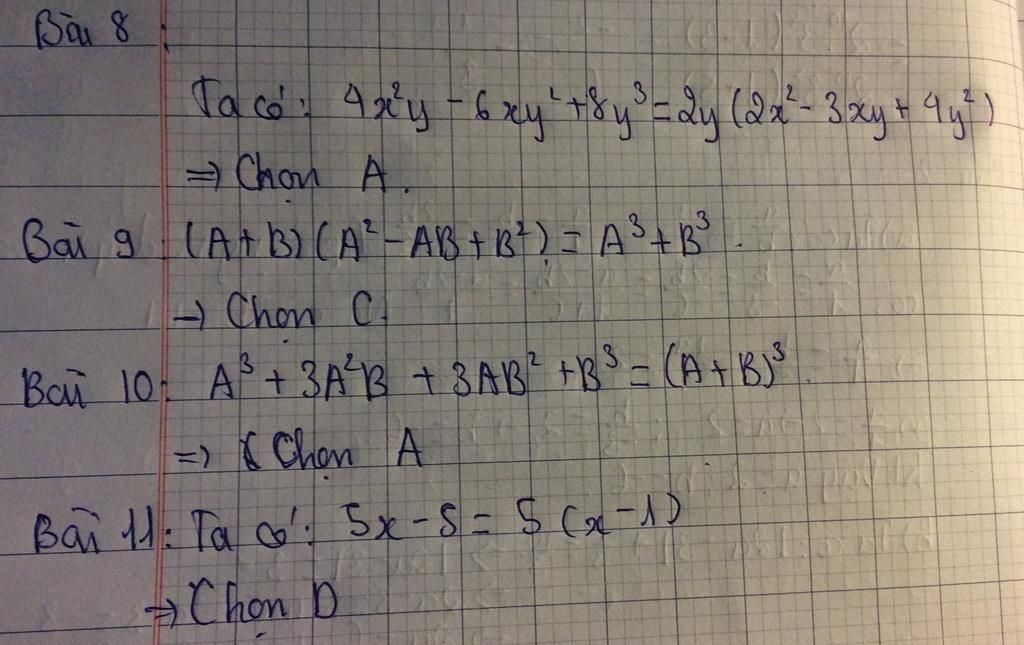 Bài 8:
Ta có: 4x²y - 6xy² + 8y³ = 2y (2x² - 3xy + 4y²)
⇒ Chọn A.
Bài 9: (A+B)(A² - AB + B²) = A³ + B³.
→ Chọn C.
Bài 10: A³ + 3A²B + 3AB² + B³ = (A+B)³.
⇒ Chọn A
Bài 11: Ta có: 5x - 5 = 5 (x - 1)
→ Chọn D